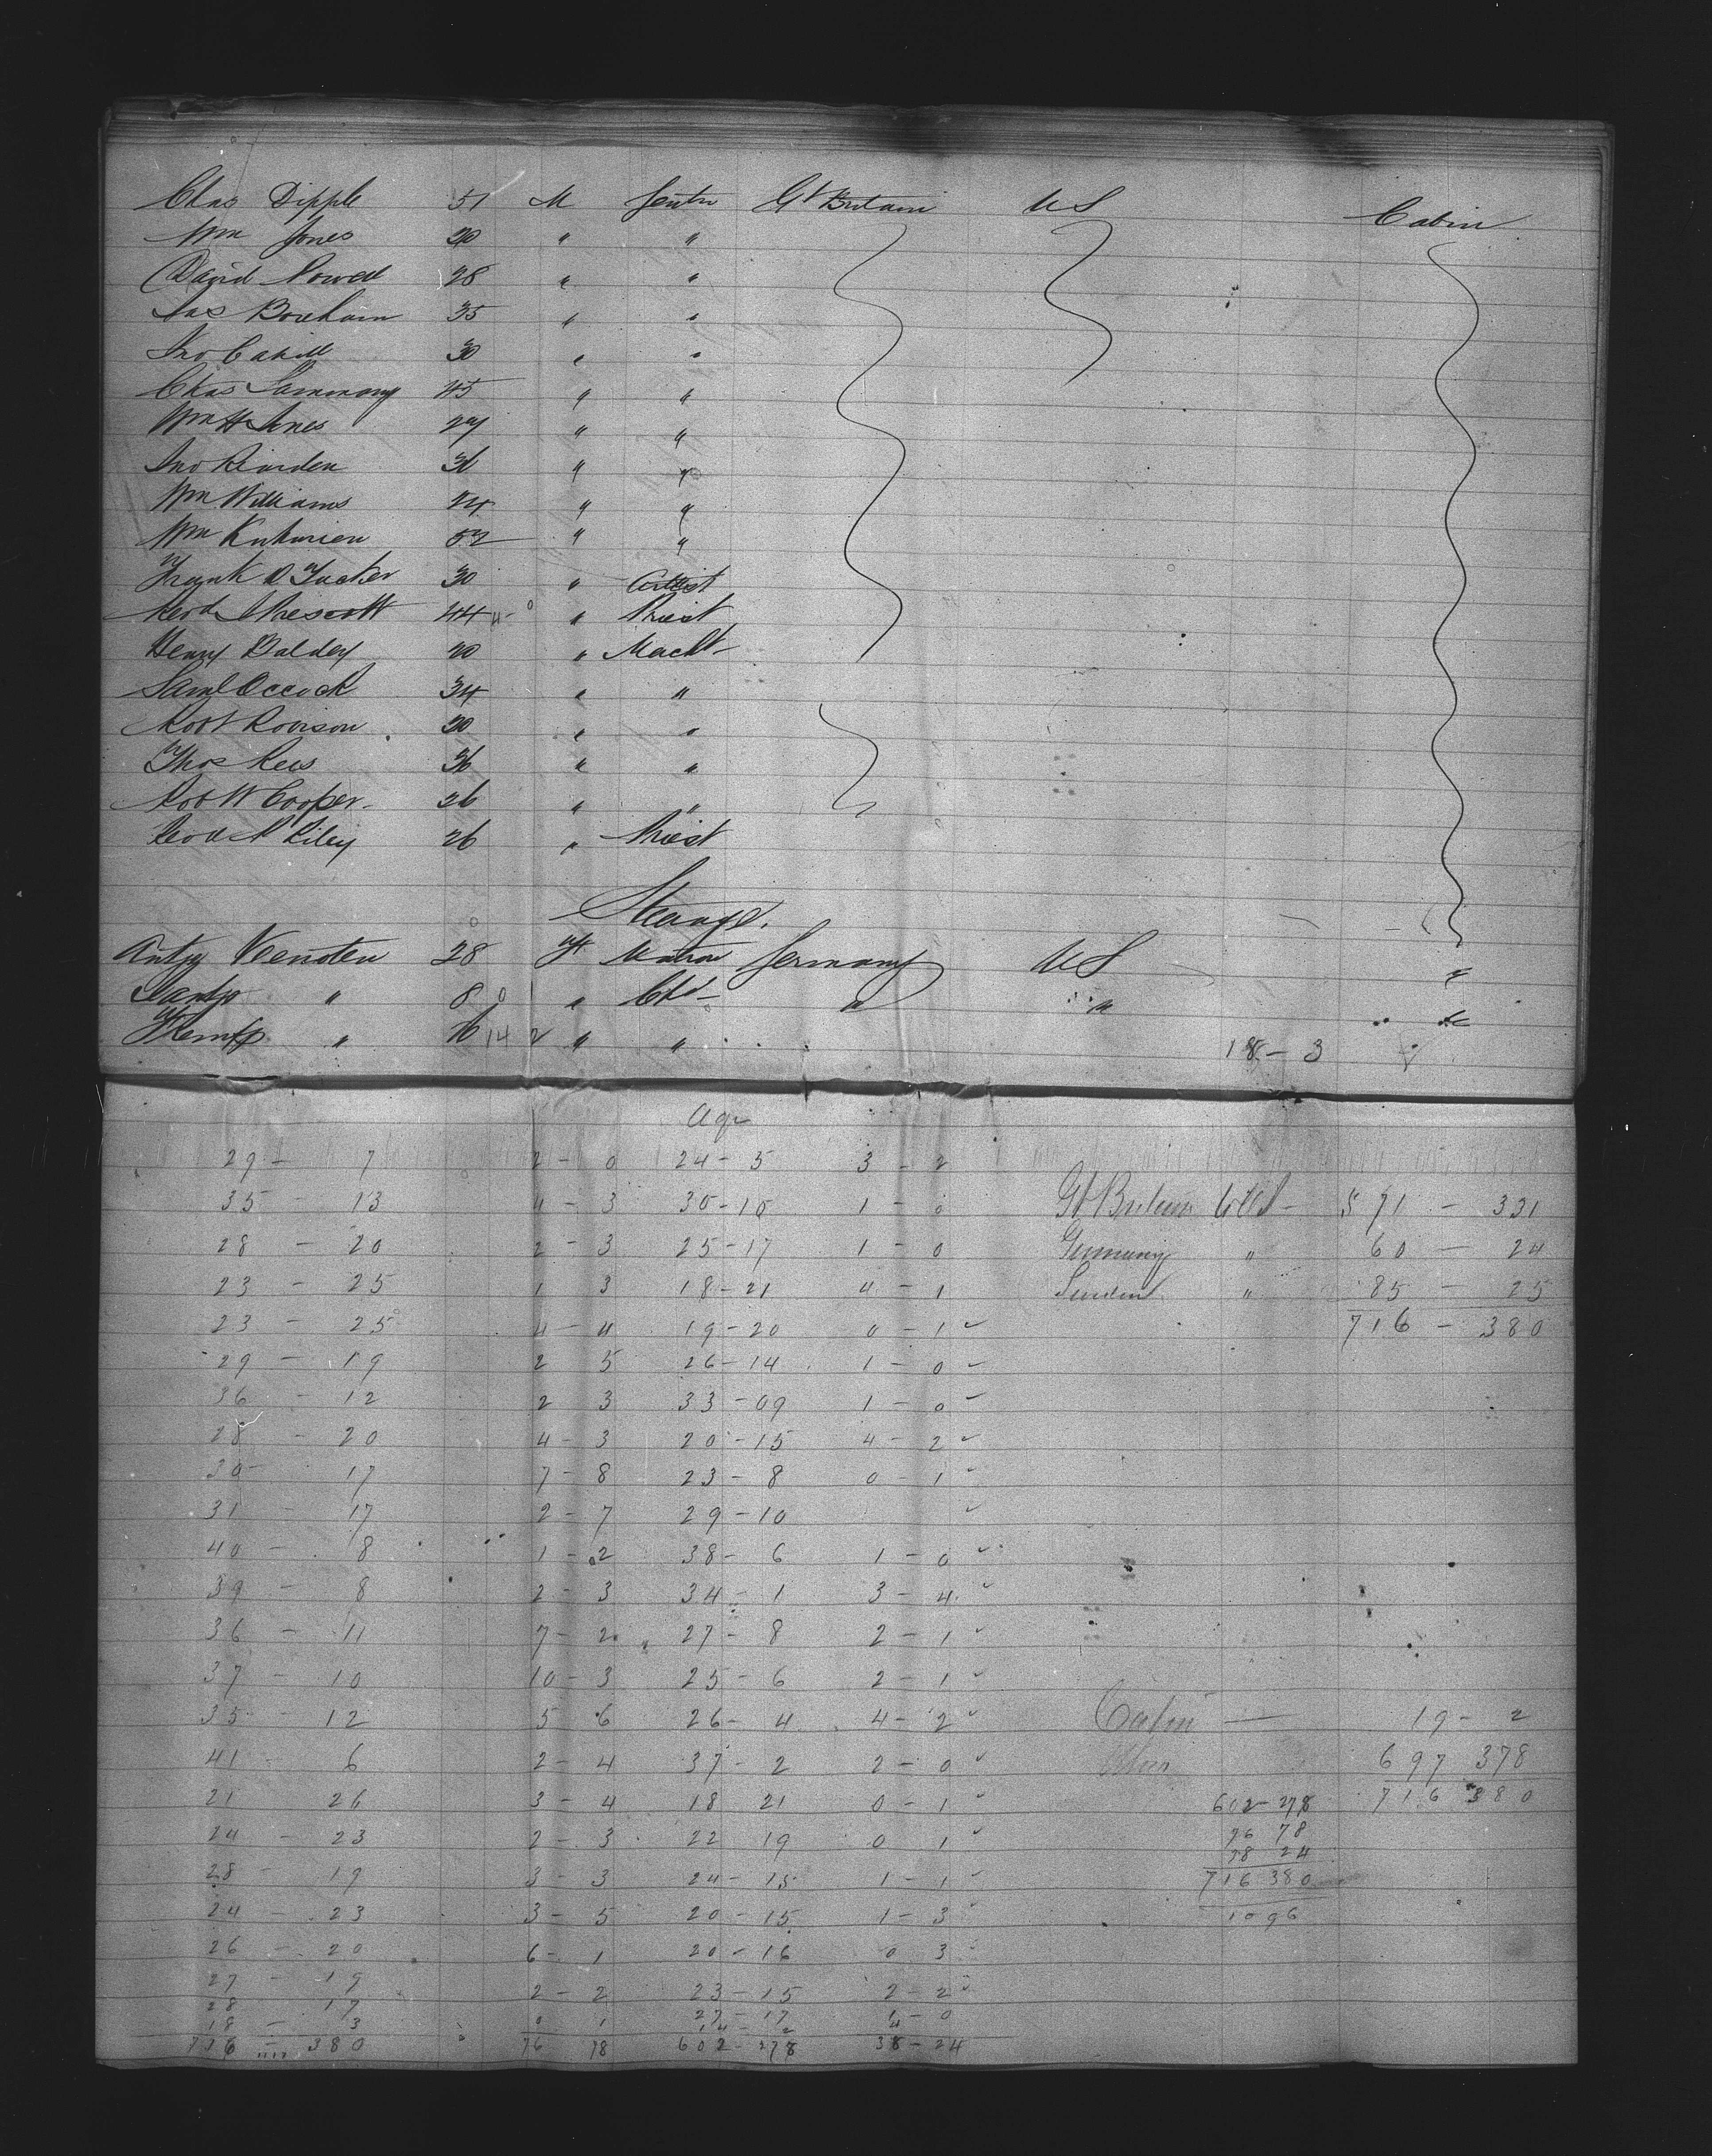 Chas Dipple 51 M Gentn Gt Britain US Cabin
Wm Jones 20 " "
David Powell 28 " "
Jas Boreham 35 " "
Jno Cahill 30 " "
Chas Sammony 45 " "
Wm H Jones 27 " "
Jno Riarden 36 " "
Wm Williams 24 " "
Wm 52 " "
Frank D Tucker 30 " Artist
Revd Prescott 44 " Priest
Henry Baldey 20 " Macht
Saml Occock 34 " "
Robt Rovison 20 " "
Thos Rees 36 " "
Robt W Cooper 26 " "
Revd Riley 26 " Priest
Steerage.
Antje Veensten 28 F Matron Germany US "
" 8 " Chd " " "
" 14 2 " " 18 - 3
Age
29 - 7 2 - 0 24 - 5 3 - 2
35 - 13 4 - 3 30 - 10 1 - 0 Gt Britain to US - 571 - 331
28 - 20 2 - 3 25 - 17 1 - 0 Germany " 60 - 24
23 - 25 1 3 18 - 21 4 - 1 Sweden " 85 - 25
23 - 25 4 - 4 19 - 20 0 - 1 716 - 380
29 - 19 2 5 26 - 14 1 - 0
36 - 12 2 3 33 - 09 1 - 0
28 - 20 4 - 3 20 - 15 4 - 2
30 - 17 7 - 8 23 - 8 0 - 1
31 - 17 2 - 7 29 - 10
40 - 8 1 - 2 38 - 6 1 - 0
39 - 8 2 - 3 34 - 1 3 - 4
36 - 11 7 - 2 27 - 8 2 - 1
37 - 10 10 - 3 25 - 6 2 - 1
35 - 12 5 6 26 - 4 4 - 2 Cabin — 19 - 2
41 - 6 2 - 4 37 - 2 2 - 0 697 378
21 26 3 - 4 18 21 0 - 1 602 - 278 716 380
24 - 23 2 - 3 22 19 0 1 76 78
38 24
28 - 19 3 - 3 24 - 15 1 - 1 716 380
24 - 23 3 - 5 20 - 15 1 - 3 1096
26 - 20 6 - 1 20 - 16 0 3
27 - 19 2 - 2 23 - 15 2 - 2
28 17 0 1 27 - 17 1 - 0
18 - 3 14 - 2 4
716 - 380 76 78 602 - 278 38 - 24